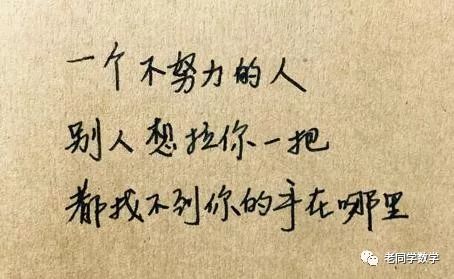 一个不努力的人
别人想拉你一把
都找不到你的手在哪里
老同学数学